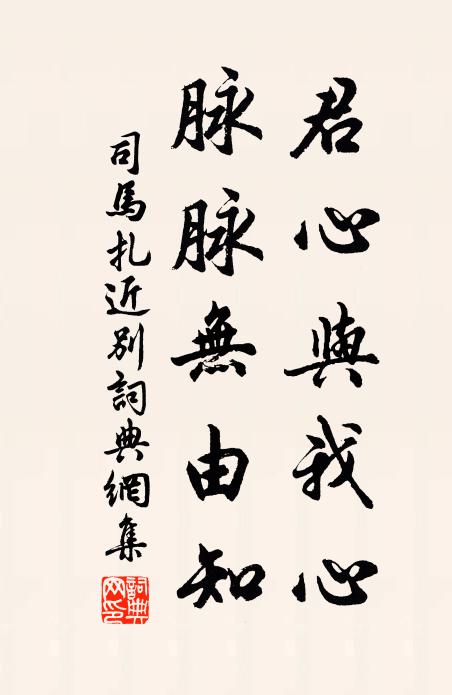 君心與我心
脉脉無由知
司馬扎近別詞典網集
詞典网印